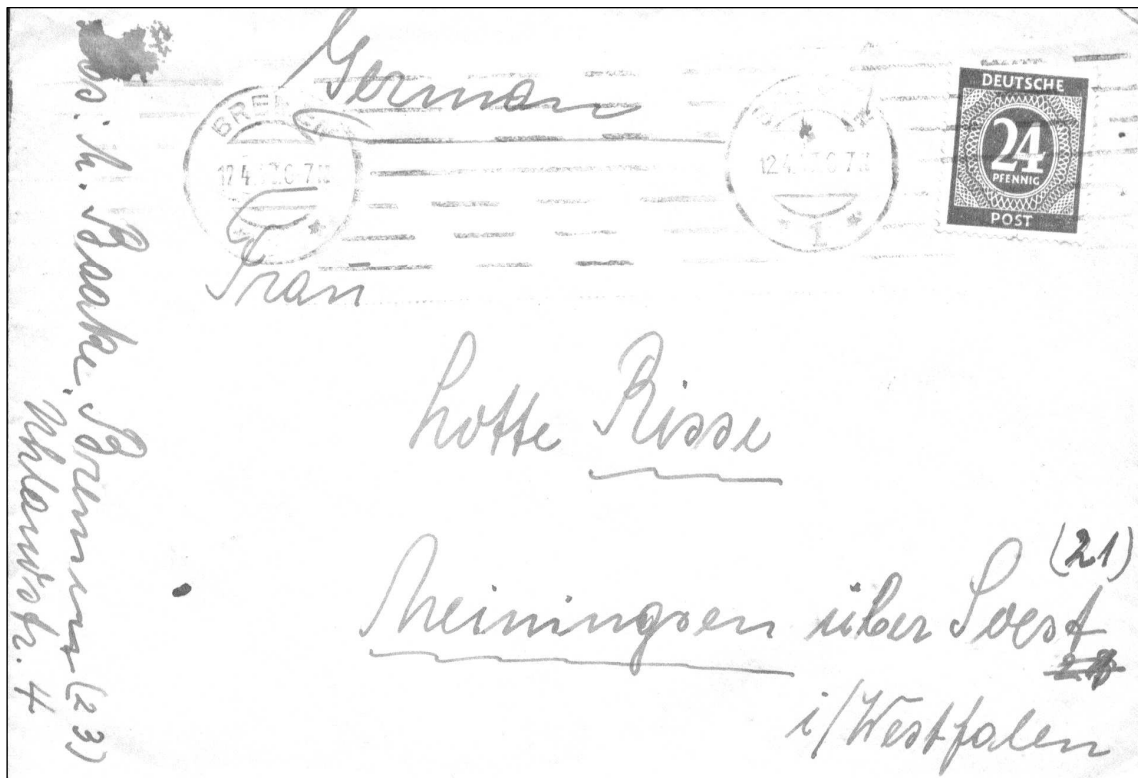 German
BREMEN
DEUTSCHE
24
PFENNIG
POST
Frau
Lotte Risse
(21)
Meiningsen über Soest
i/Westfalen
M. Baake, Bremen (23)
Uhlandstr. 4